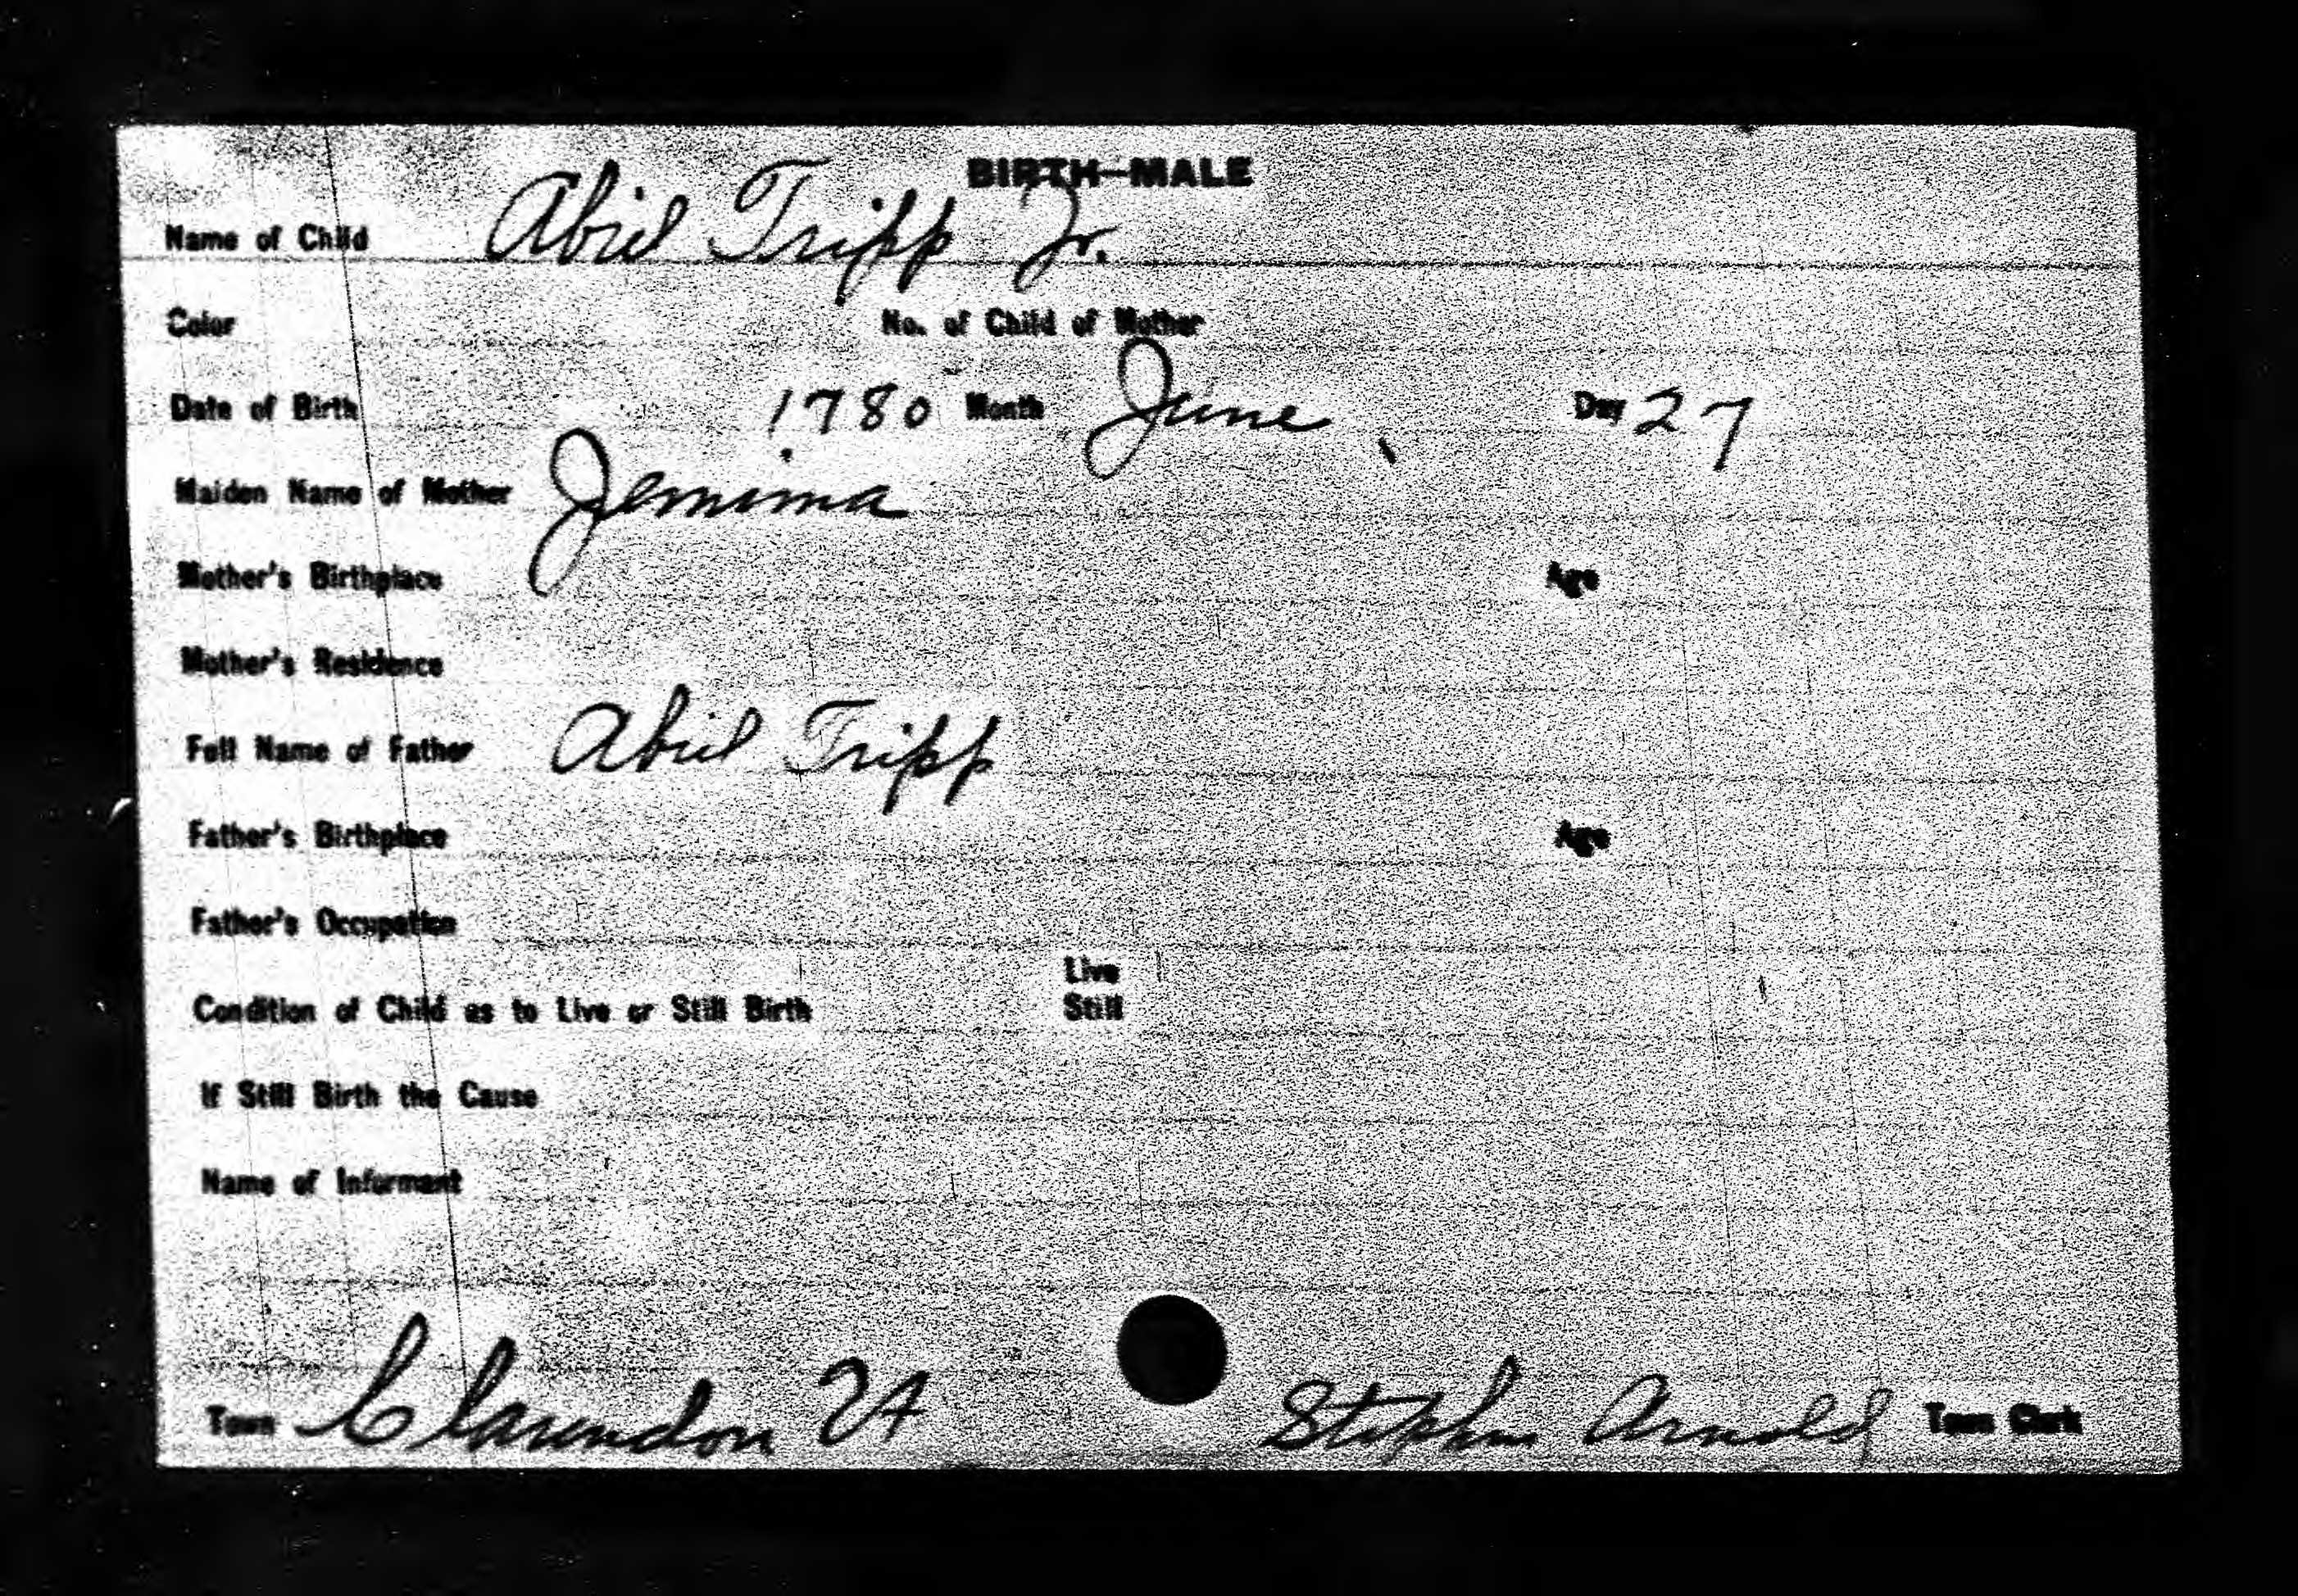 BIRTH—MALE
Name of Child Abiel Tripp Jr.
Color No. of Child of Mother
Date of Birth 1780 Month June Day 27
Maiden Name of Mother Jemima
Mother's Birthplace Age
Mother's Residence
Full Name of Father Abiel Tripp
Father's Birthplace Age
Father's Occupation
Live
Condition of Child as to Live or Still Birth Still
If Still Birth the Cause
Name of Informant
Town Clarendon Vt Stephen Arnold Town Clerk